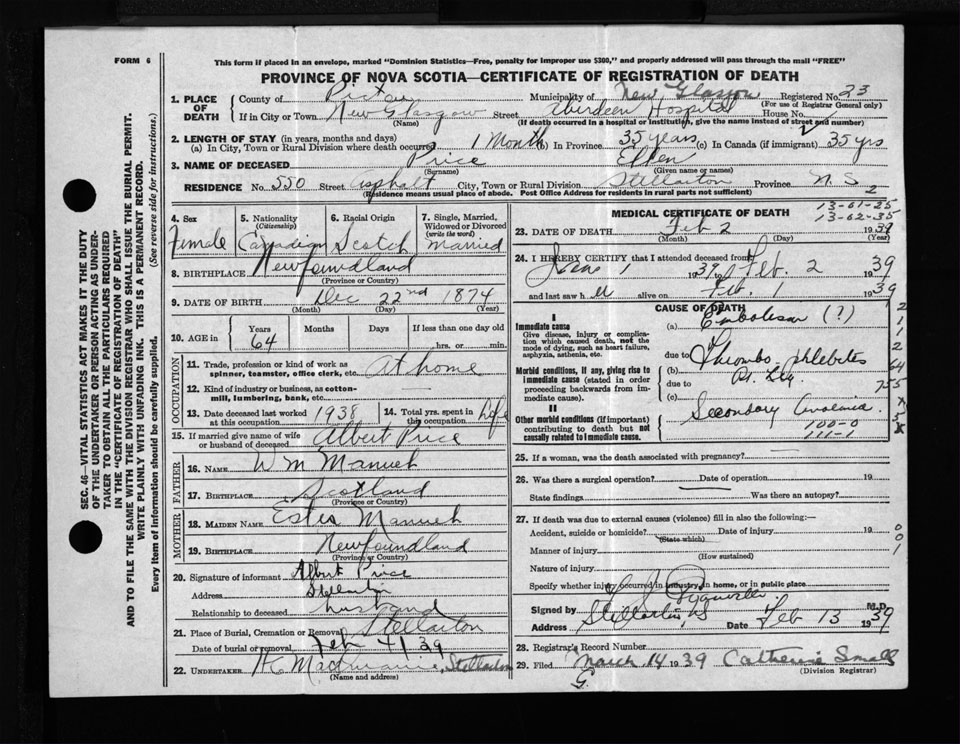 FORM 6
This form if placed in an envelope, marked "Dominion Statistics—Free, penalty for improper use $300," and properly addressed will pass through the mail "FREE"
PROVINCE OF NOVA SCOTIA—CERTIFICATE OF REGISTRATION OF DEATH
1. PLACE OF DEATH
County of Pictou Municipality of New Glasgow Registered No. 23
(For use of Registrar General only)
If in City or Town New Glasgow Street Aberdeen Hospital House No.
(Name) (If death occurred in a hospital or institution, give the name instead of street and number)
2. LENGTH OF STAY (in years, months and days)
(a) In City, Town or Rural Division where death occurred 1 Month In Province 35 years (c) In Canada (if immigrant) 35 yrs
3. NAME OF DECEASED Price Ellen
(Surname) (Given name or names)
RESIDENCE No. 550 Street Asphalt City, Town or Rural Division Stellarton Province N.S. 2
(Residence means usual place of abode. Post Office Address for residents in rural parts not sufficient)
4. Sex Female
5. Nationality (Citizenship) Canadian
6. Racial Origin Scotch
7. Single, Married, Widowed or Divorced (write the word) Married
8. BIRTHPLACE Newfoundland
(Province or Country)
9. DATE OF BIRTH Dec 22nd 1874
(Month) (Day) (Year)
10. AGE in Years 64 Months Days If less than one day old hrs. or min.
OCCUPATION
11. Trade, profession or kind of work as spinner, teamster, office clerk, etc. At home
12. Kind of industry or business, as cotton-mill, lumbering, bank, etc.
13. Date deceased last worked at this occupation 1938
14. Total yrs. spent in this occupation life
15. If married give name of wife or husband of deceased Albert Price
FATHER
16. NAME Wm
17. BIRTHPLACE Scotland
(Province or Country)
MOTHER
18. MAIDEN NAME
19. BIRTHPLACE Newfoundland
(Province or Country)
20. Signature of informant Albert Price
Address Stellarton
Relationship to deceased husband
21. Place of Burial, Cremation or Removal Stellarton
Date of burial or removal Feb 4/39
22. UNDERTAKER Stellarton
(Name and address)
MEDICAL CERTIFICATE OF DEATH
13-61-25
13-62-35
23. DATE OF DEATH Feb 2 1939
(Month) (Day) (Year)
24. I HEREBY CERTIFY that I attended deceased from
1 1939 to Feb. 2 1939
and last saw her alive on Feb. 1 1939
CAUSE OF DEATH
I
Immediate cause
Give disease, injury or complication which caused death, not the mode of dying, such as heart failure, asphyxia, asthenia, etc.
(a) Embolism (?)
due to
Morbid conditions, if any, giving rise to immediate cause (stated in order proceeding backwards from immediate cause).
(b) Thrombo-phlebitis Rt. Leg
due to
(c)
II
Other morbid conditions (if important) contributing to death but not causally related to immediate cause.
Secondary
100-0
111-1
25. If a woman, was the death associated with pregnancy?
26. Was there a surgical operation? Date of operation 19
State findings Was there an autopsy?
27. If death was due to external causes (violence) fill in also the following:—
Accident, suicide or homicide? Date of injury 19
(State which)
Manner of injury
(How sustained)
Nature of injury
Specify whether injury occurred in industry, in home, or in public place
Signed by M.D.
Address Stellarton, NS Date Feb 13 1939
28. Registrar's Record Number
29. Filed March 14 1939 Catherine Small
(Division Registrar)
SEC. 46—VITAL STATISTICS ACT MAKES IT THE DUTY
OF THE UNDERTAKER OR PERSON ACTING AS UNDER-
TAKER TO OBTAIN ALL THE PARTICULARS REQUIRED
IN THE "CERTIFICATE OF REGISTRATION OF DEATH"
AND TO FILE THE SAME WITH THE DIVISION REGISTRAR WHO SHALL ISSUE THE BURIAL PERMIT.
WRITE PLAINLY WITH UNFADING INK. THIS IS A PERMANENT RECORD.
Every item of information should be carefully supplied. (See reverse side for instructions.)